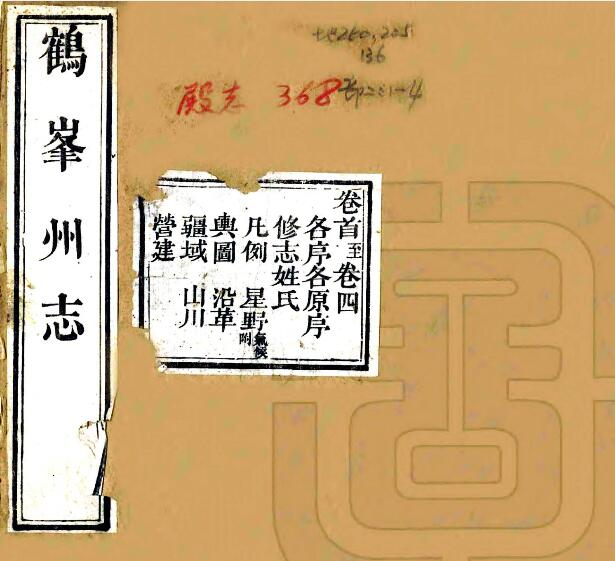 鶴峯州志
地260,205
136
殿志 368
卷首至卷四
各序各原序
修志姓氏
凡例 星野氣候附
輿圖 沿革
疆域 山川
營建